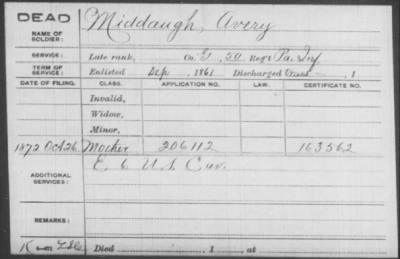 DEAD
NAME OF SOLDIER: Middaugh, Avery
SERVICE: Late rank, Co. G, 50 Reg't Pa. Inf
TERM OF SERVICE: Enlisted Sep, 1861 Discharged , 1
DATE OF FILING. CLASS. APPLICATION NO. LAW. CERTIFICATE NO.
Invalid,
Widow,
Minor,
1872 Oct 26 Mother 206112 163562
ADDITIONAL SERVICES: E. 6 U.S. Cav.
REMARKS:
Died , 1 , at